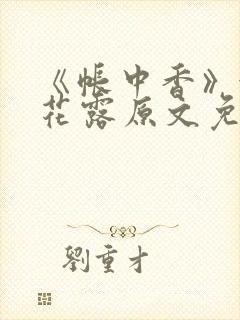 《帐中香》
花露原文免
劉重才